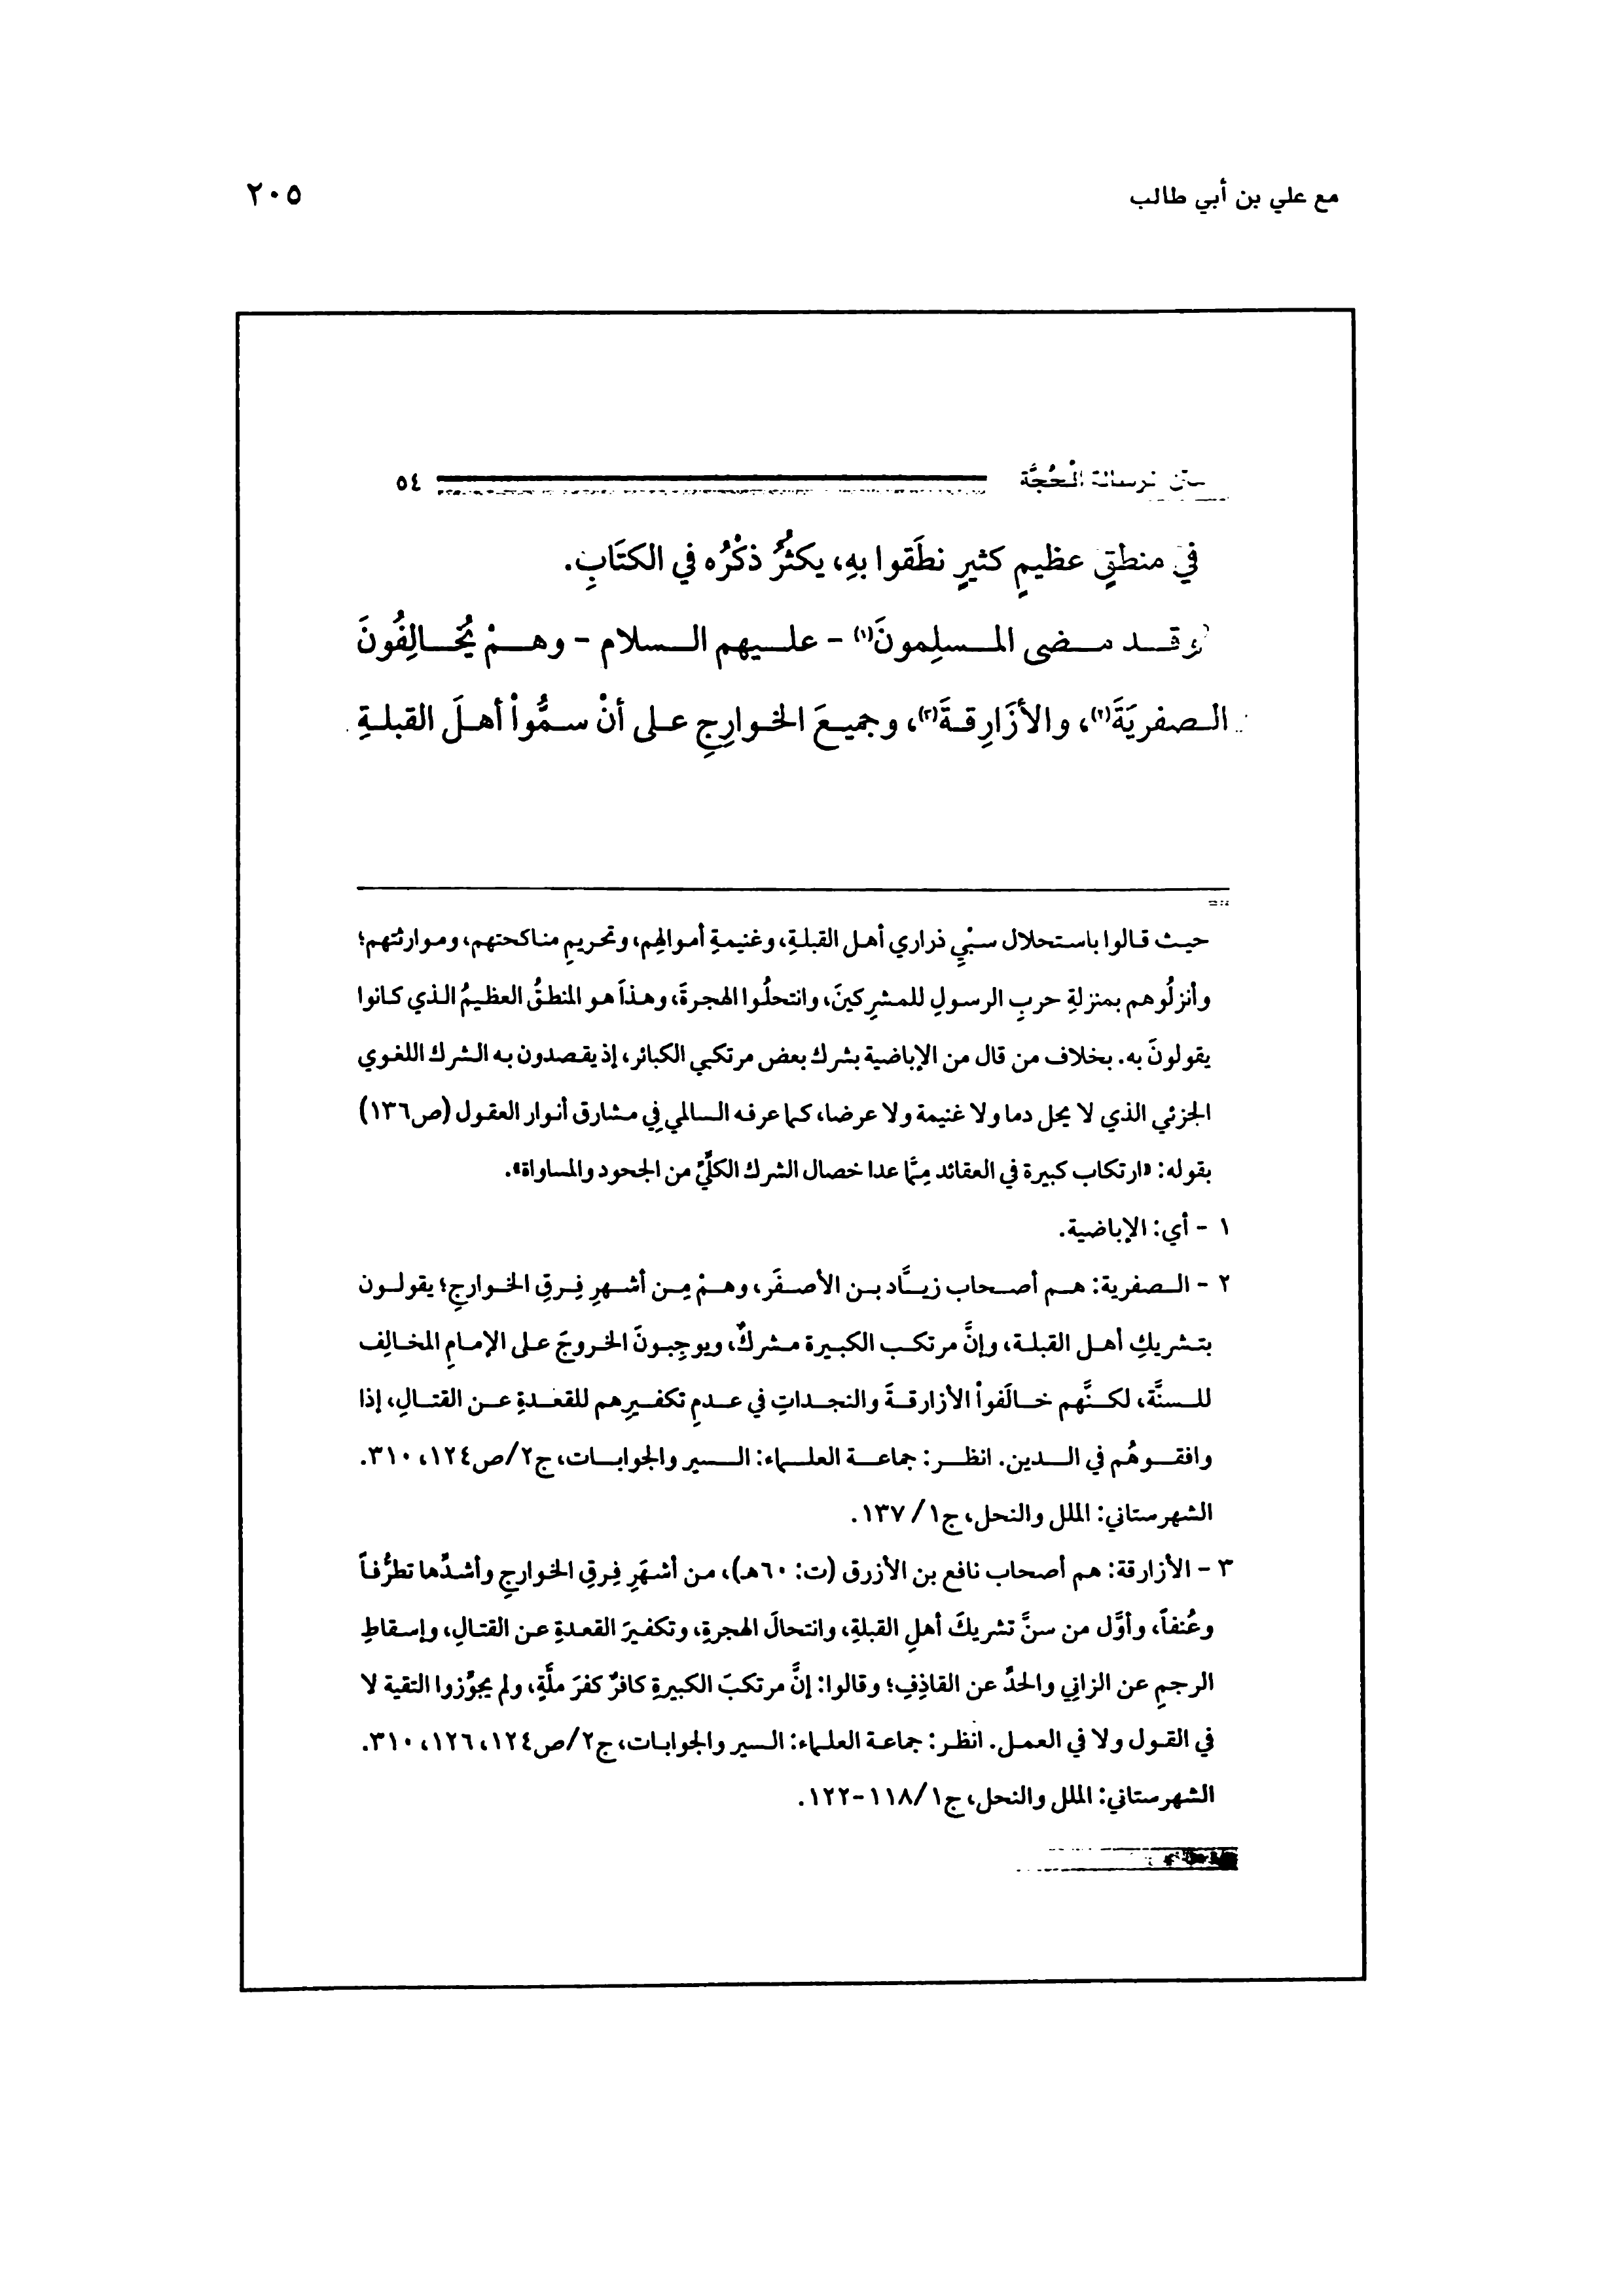 مع علي بن أبي طالب ٢٠٥
الْحُجَّة ٥٤
في منطقٍ عظيمٍ كثيرٍ نطَقوا بهِ، يكثُرُ ذكْرُه في الكتَابِ.
وقد مضى المسلِمونَ(١) - عليهم السلام - وهمْ يُخَالِفُونَ
الصفريَةَ(٢)، والأزَارِقةَ(٣)، وجميعَ الخوارِجِ على أنْ سمُّواْ أهلَ القبلةِ
حيث قالوا باستحلال سبْيِ ذراري أهل القبلةِ، وغنيمةِ أموالهِم، وتحريمِ مناكحتهم، وموارثتهم؛
وأنزلُوهم بمنزلةِ حربِ الرسولِ للمشرِكينَ، وانتحلُوا الهجرةَ، وهذَا هو المنطقُ العظيمُ الذي كانوا
يقولونَ به. بخلاف من قال من الإباضية بشرك بعض مرتكبي الكبائر، إذ يقصدون به الشرك اللغوي
الجزئي الذي لا يحل دما ولا غنيمة ولا عرضا، كما عرفه السالمي في مشارق أنوار العقول (ص١٣٦)
بقوله: «ارتكاب كبيرة في العقائد مِمَّا عدا خصال الشرك الكلِّيِّ من الجحود والمساواة».
١ - أي: الإباضية.
٢ - الصفرية: هم أصحاب زيَّاد بن الأصفَر، وهمْ مِن أشهرِ فِرقِ الخوارجِ؛ يقولون
بتشريكِ أهل القبلة، وإنَّ مرتكب الكبيرة مشركٌ، ويوجِبونَ الخروجَ على الإمامِ المخالِف
للسنَّة، لكنَّهم خالَفواْ الأزارقةَ والنجداتِ في عدمِ تكفيرِهم للقعْدةِ عن القتالِ، إذا
وافقوهُم في الدين. انظر: جماعة العلماء: السير والجوابات، ج٢/ص١٢٤، ٣١٠.
الشهرستاني: الملل والنحل، ج١/ ١٣٧.
٣ - الأزارقة: هم أصحاب نافع بن الأزرق (ت: ٦٠هـ)، من أشهَرِ فِرقِ الخوارجِ وأشدِّها تطرُّفاً
وعُنفاً، وأوَّل من سنَّ تشريكَ أهلِ القبلةِ، وانتحالَ الهجرةِ، وتكفيرَ القعدةِ عن القتالِ، وإسقاطِ
الرجمِ عن الزانِي والحدِّ عن القاذِفِ؛ وقالوا: إنَّ مرتكبَ الكبيرةِ كافرٌ كفرَ ملَّةٍ، ولم يجوِّزوا التقية لا
في القول ولا في العمل. انظر: جماعة العلماء: السير والجوابات، ج٢/ص١٢٤، ١٢٦، ٣١٠.
الشهرستاني: الملل والنحل، ج١/١١٨-١٢٢.